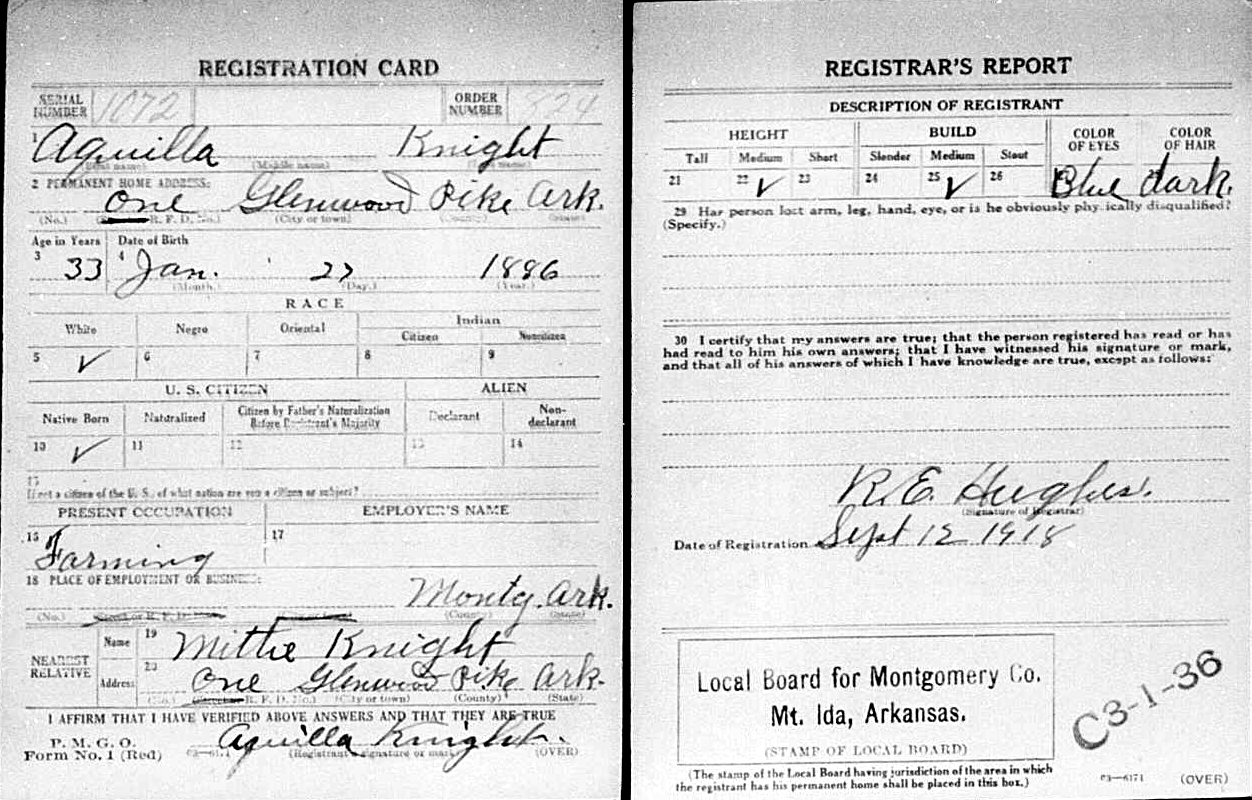 REGISTRATION CARD
SERIAL NUMBER 1072 ORDER NUMBER
1 Aquilla Knight
(First name) (Middle name) (Last name)
2 PERMANENT HOME ADDRESS:
One Glenwood Pike Ark.
(No.) R. F. D. No.) (City or town) (County) (State)
Age in Years Date of Birth
3 33 4 Jan. 27 1886
(Month.) (Day.) (Year.)
RACE
White Negro Oriental Indian
Citizen Noncitizen
5 ✓ 6 7 8 9
U. S. CITIZEN ALIEN
Native Born Naturalized Citizen by Father's Naturalization Before Registrant's Majority Declarant Non-declarant
10 ✓ 11 12 13 14
15
If not a citizen of the U. S., of what nation are you a citizen or subject?
PRESENT OCCUPATION EMPLOYER'S NAME
16 Farming 17
18 PLACE OF EMPLOYMENT OR BUSINESS:
Montg. Ark.
(No.) (County) (State)
NEAREST RELATIVE Name 19 Mittie Knight
Address 20 One Glenwood Pike Ark.
(No.) R. F. D. No.) (City or town) (County) (State)
I AFFIRM THAT I HAVE VERIFIED ABOVE ANSWERS AND THAT THEY ARE TRUE
P. M. G. O.
Form No. 1 (Red) Aquilla Knight.
(Registrant's signature or mark) (OVER)
REGISTRAR'S REPORT
DESCRIPTION OF REGISTRANT
HEIGHT BUILD COLOR OF EYES COLOR OF HAIR
Tall Medium Short Slender Medium Stout
21 22 ✓ 23 24 25 ✓ 26 Blue dark.
29 Has person lost arm, leg, hand, eye, or is he obviously physically disqualified?
(Specify.)
30 I certify that my answers are true; that the person registered has read or has
had read to him his own answers; that I have witnessed his signature or mark,
and that all of his answers of which I have knowledge are true, except as follows:
R. E. Hughes.
(Signature of Registrar)
Date of Registration Sept 12 1918
Local Board for Montgomery Co.
Mt. Ida, Arkansas.
(STAMP OF LOCAL BOARD)
C3-1-36
(The stamp of the Local Board having jurisdiction of the area in which
the registrant has his permanent home shall be placed in this box.)
03—6171 (OVER)